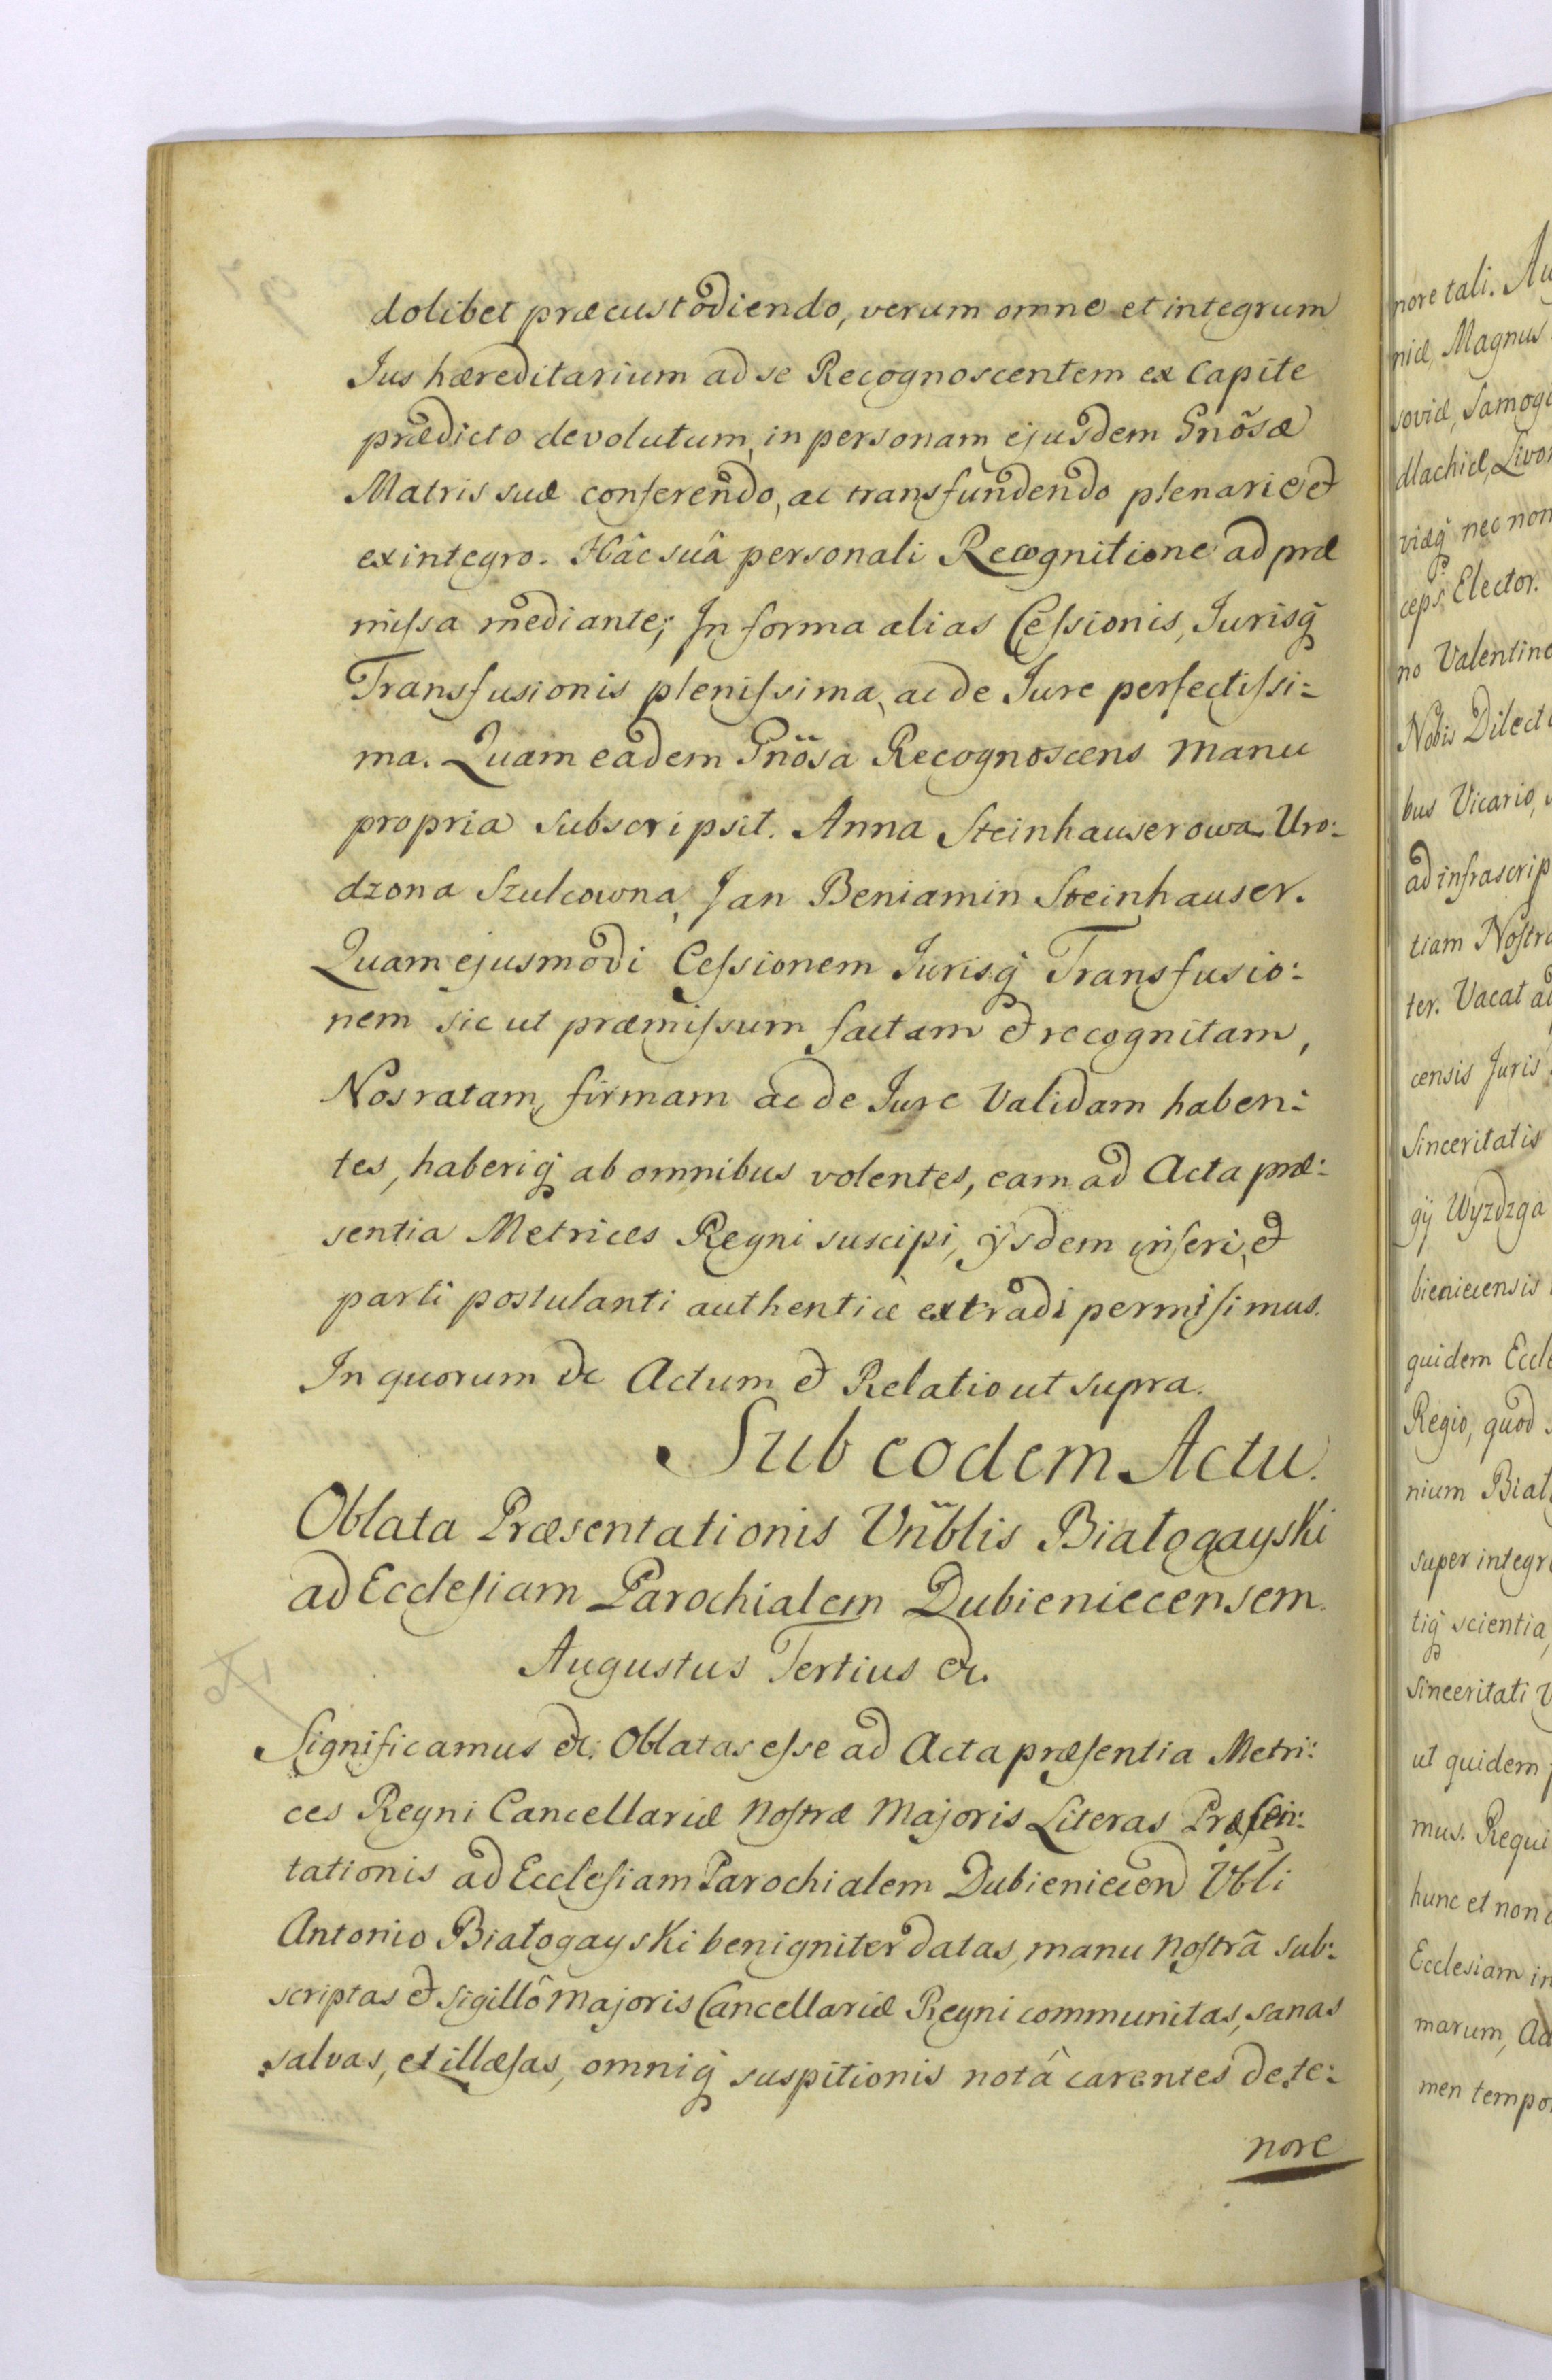 dolibet præcustodiendo, verum omne et integrum
Jus hæreditarium ad se Recognoscentem ex Capite
prædicto devolutum, in personam ejusdem Gnõsæ
Matris suæ conferendo, ac transfundendo plenarie et
ex integro. Hâc suâ personali Recognitione ad præ
missa mediante; In forma alias Cessionis, Jurisq̃
Transfusionis plenissima, ac de Jure perfectissi=
ma. Quam eadem Gnõsa Recognoscens manu
propria subscripsit. Anna Steinhauserowa Uro:
dzona Szulcowna, Jan Beniamin Steinhauser.
Quam ejusmodi Cessionem Jurisq̃ Transfusio:
nem sic ut præmissum factam et recognitam,
Nos ratam, firmam ac de Jure Validam haben:
tes, haberiq̃ ab omnibus volentes, eam ad Acta præ:
sentia Metrices Regni suscipi, ijsdem inseri, et
parti postulanti authenticè extradi permisimus.
In quorum &c Actum et Relatio ut supra.
Sub eodem Actu.
Oblata Præsentationis Vñblis Białogayski
ad Ecclesiam Parochialem Dubieniecensem.
Augustus Tertius &c.
Significamus &c. Oblatas esse ad Acta præsentia Metri:
ces Regni Cancellariæ Nostræ Majoris Literas Præsen:
tationis ad Ecclesiam Parochialem Dubieniecen Vbli
Antonio Białogayski benigniter datas, manu Nostrâ sub:
scriptas et Sigillô Majoris Cancellariæ Regni communitas, sanas
salvas, et illæsas, omniq̃ suspitionis notâ carentes de te:
nore
nore tali. Au
niæ, Magnus
soviæ, Samogi
dlachiæ, Livon
viæq̃ nec non
ceps Elector.
no Valentino
Nobis Dilect
bus Vicario,
ad infrascrip
tiam Nostra
ter. Vacat ad
censis Juris
Sinceritatis
gij Wyzdzga
bieniecensis
quidem Eccle
Regio, quod
nium Biał
super integr
tiq̃ scientia,
Sinceritati V
ut quidem
mus. Requi
hunc et non
Ecclesiam in
marum, Ad
men tempo